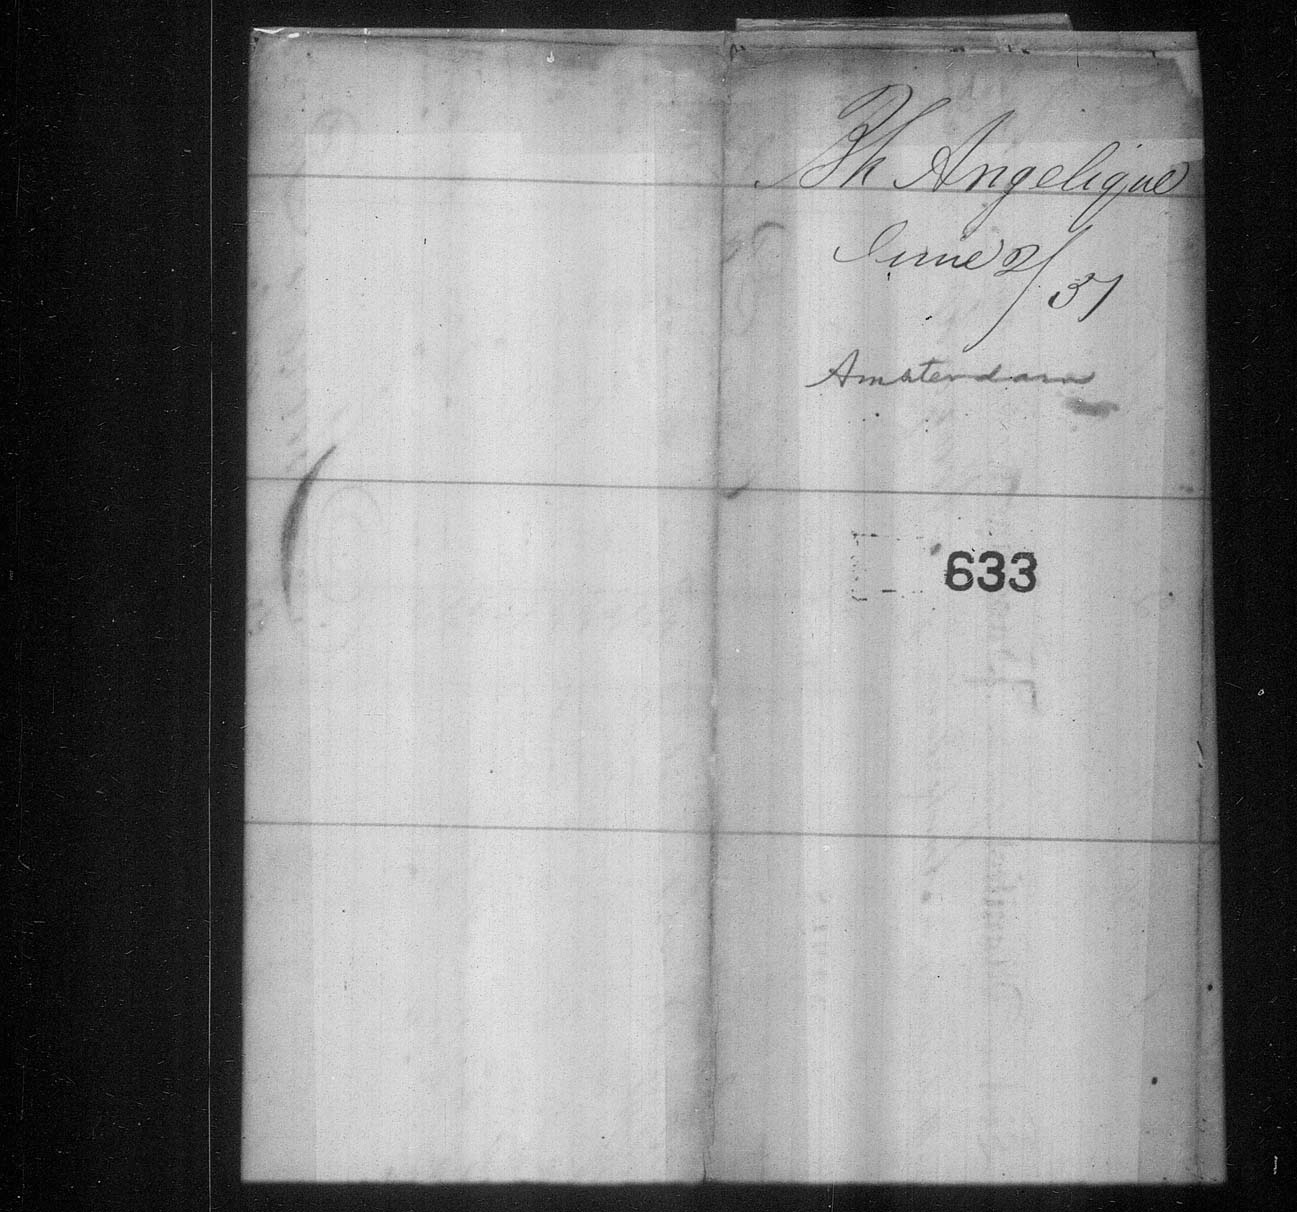 Bk Angelique
June 2/37
Amsterdam
633